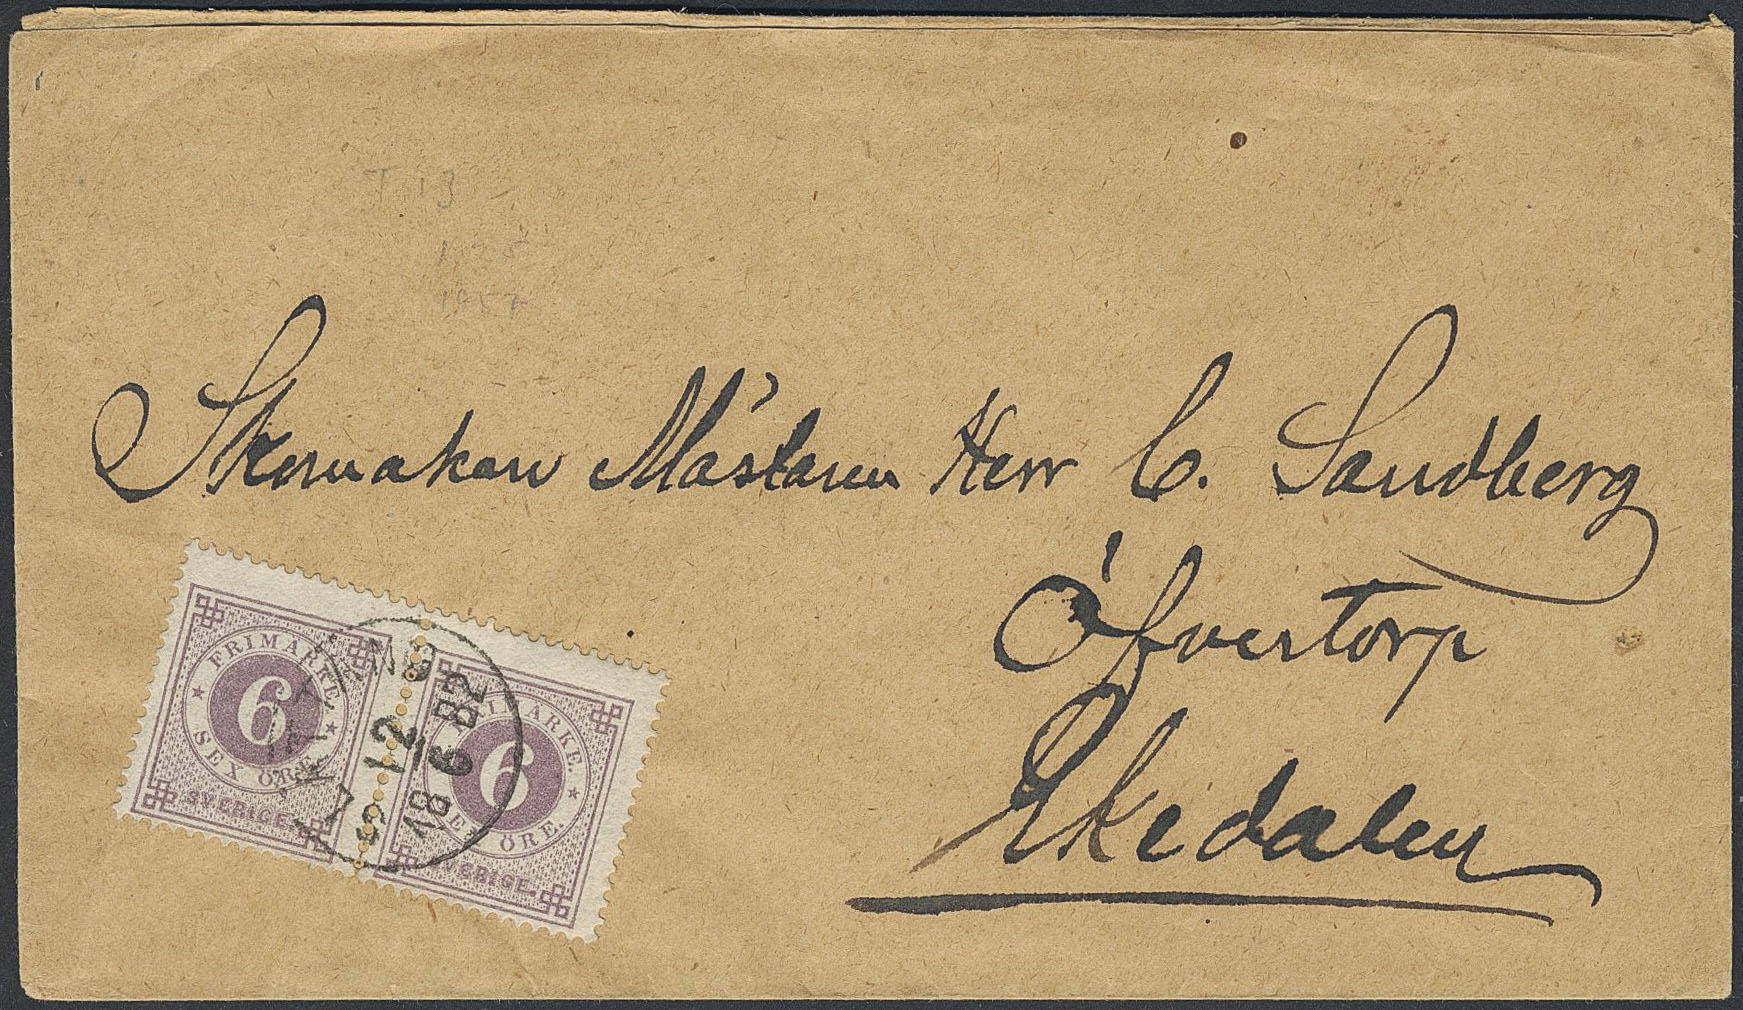 T 13
Skomakare Mästaren Herr C. Sandberg
Öfvertorp
Ekedalen
FRIMÄRKE
6
SEX ÖRE
SVERIGE
FRIMÄRKE
6
SEX ÖRE
SVERIGE
12
18 6 82